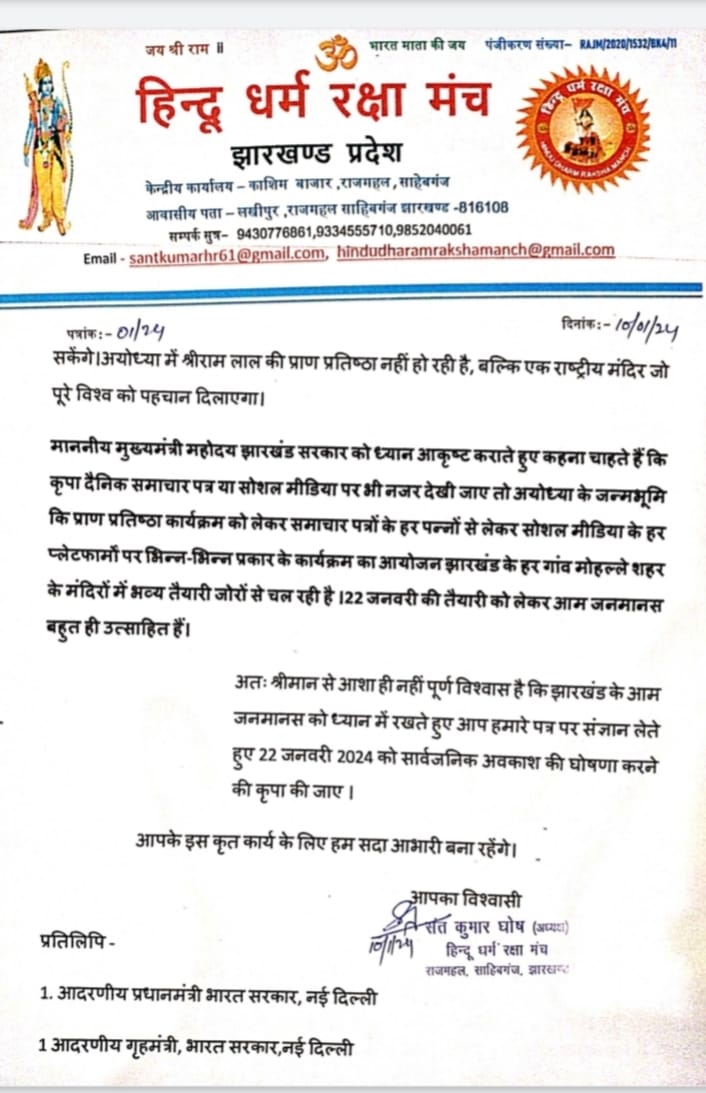 जय श्री राम ॥ ॐ भारत माता की जय पंजीकरण संख्या– RAJM/2020/1532/BK4/11
हिन्दू धर्म रक्षा मंच
हिन्दू धर्म रक्षा मंच
HINDU DHARM RAKSHA MANCH
झारखण्ड प्रदेश
केन्द्रीय कार्यालय – काशिम बाजार ,राजमहल ,साहेबगंज
आवासीय पता – लखीपुर ,राजमहल साहिबगंज झारखण्ड -816108
सम्पर्क सुत्र– 9430776861,9334555710,9852040061
Email - santkumarhr61@gmail.com, hindudharamrakshamanch@gmail.com
पत्रांक:- 01/24 दिनांक:- 10/01/24
सकेंगे।अयोध्या में श्रीराम लाल की प्राण प्रतिष्ठा नहीं हो रही है, बल्कि एक राष्ट्रीय मंदिर जो
पूरे विश्व को पहचान दिलाएगा।
माननीय मुख्यमंत्री महोदय झारखंड सरकार को ध्यान आकृष्ट कराते हुए कहना चाहते हैं कि
कृपा दैनिक समाचार पत्र या सोशल मीडिया पर भी नजर देखी जाए तो अयोध्या के जन्मभूमि
कि प्राण प्रतिष्ठा कार्यक्रम को लेकर समाचार पत्रों के हर पन्नों से लेकर सोशल मीडिया के हर
प्लेटफार्मों पर भिन्न-भिन्न प्रकार के कार्यक्रम का आयोजन झारखंड के हर गांव मोहल्ले शहर
के मंदिरों में भव्य तैयारी जोरों से चल रही है ।22 जनवरी की तैयारी को लेकर आम जनमानस
बहुत ही उत्साहित हैं।
अतः श्रीमान से आशा ही नहीं पूर्ण विश्वास है कि झारखंड के आम
जनमानस को ध्यान में रखते हुए आप हमारे पत्र पर संज्ञान लेते
हुए 22 जनवरी 2024 को सार्वजनिक अवकाश की घोषणा करने
की कृपा की जाए ।
आपके इस कृत कार्य के लिए हम सदा आभारी बना रहेंगे।
आपका विश्वासी
संत कुमार घोष (अध्यक्ष)
10/1/24
हिन्दू धर्म रक्षा मंच
राजमहल, साहिबगंज, झारखण्ड
प्रतिलिपि -
1. आदरणीय प्रधानमंत्री भारत सरकार, नई दिल्ली
1 आदरणीय गृहमंत्री, भारत सरकार,नई दिल्ली